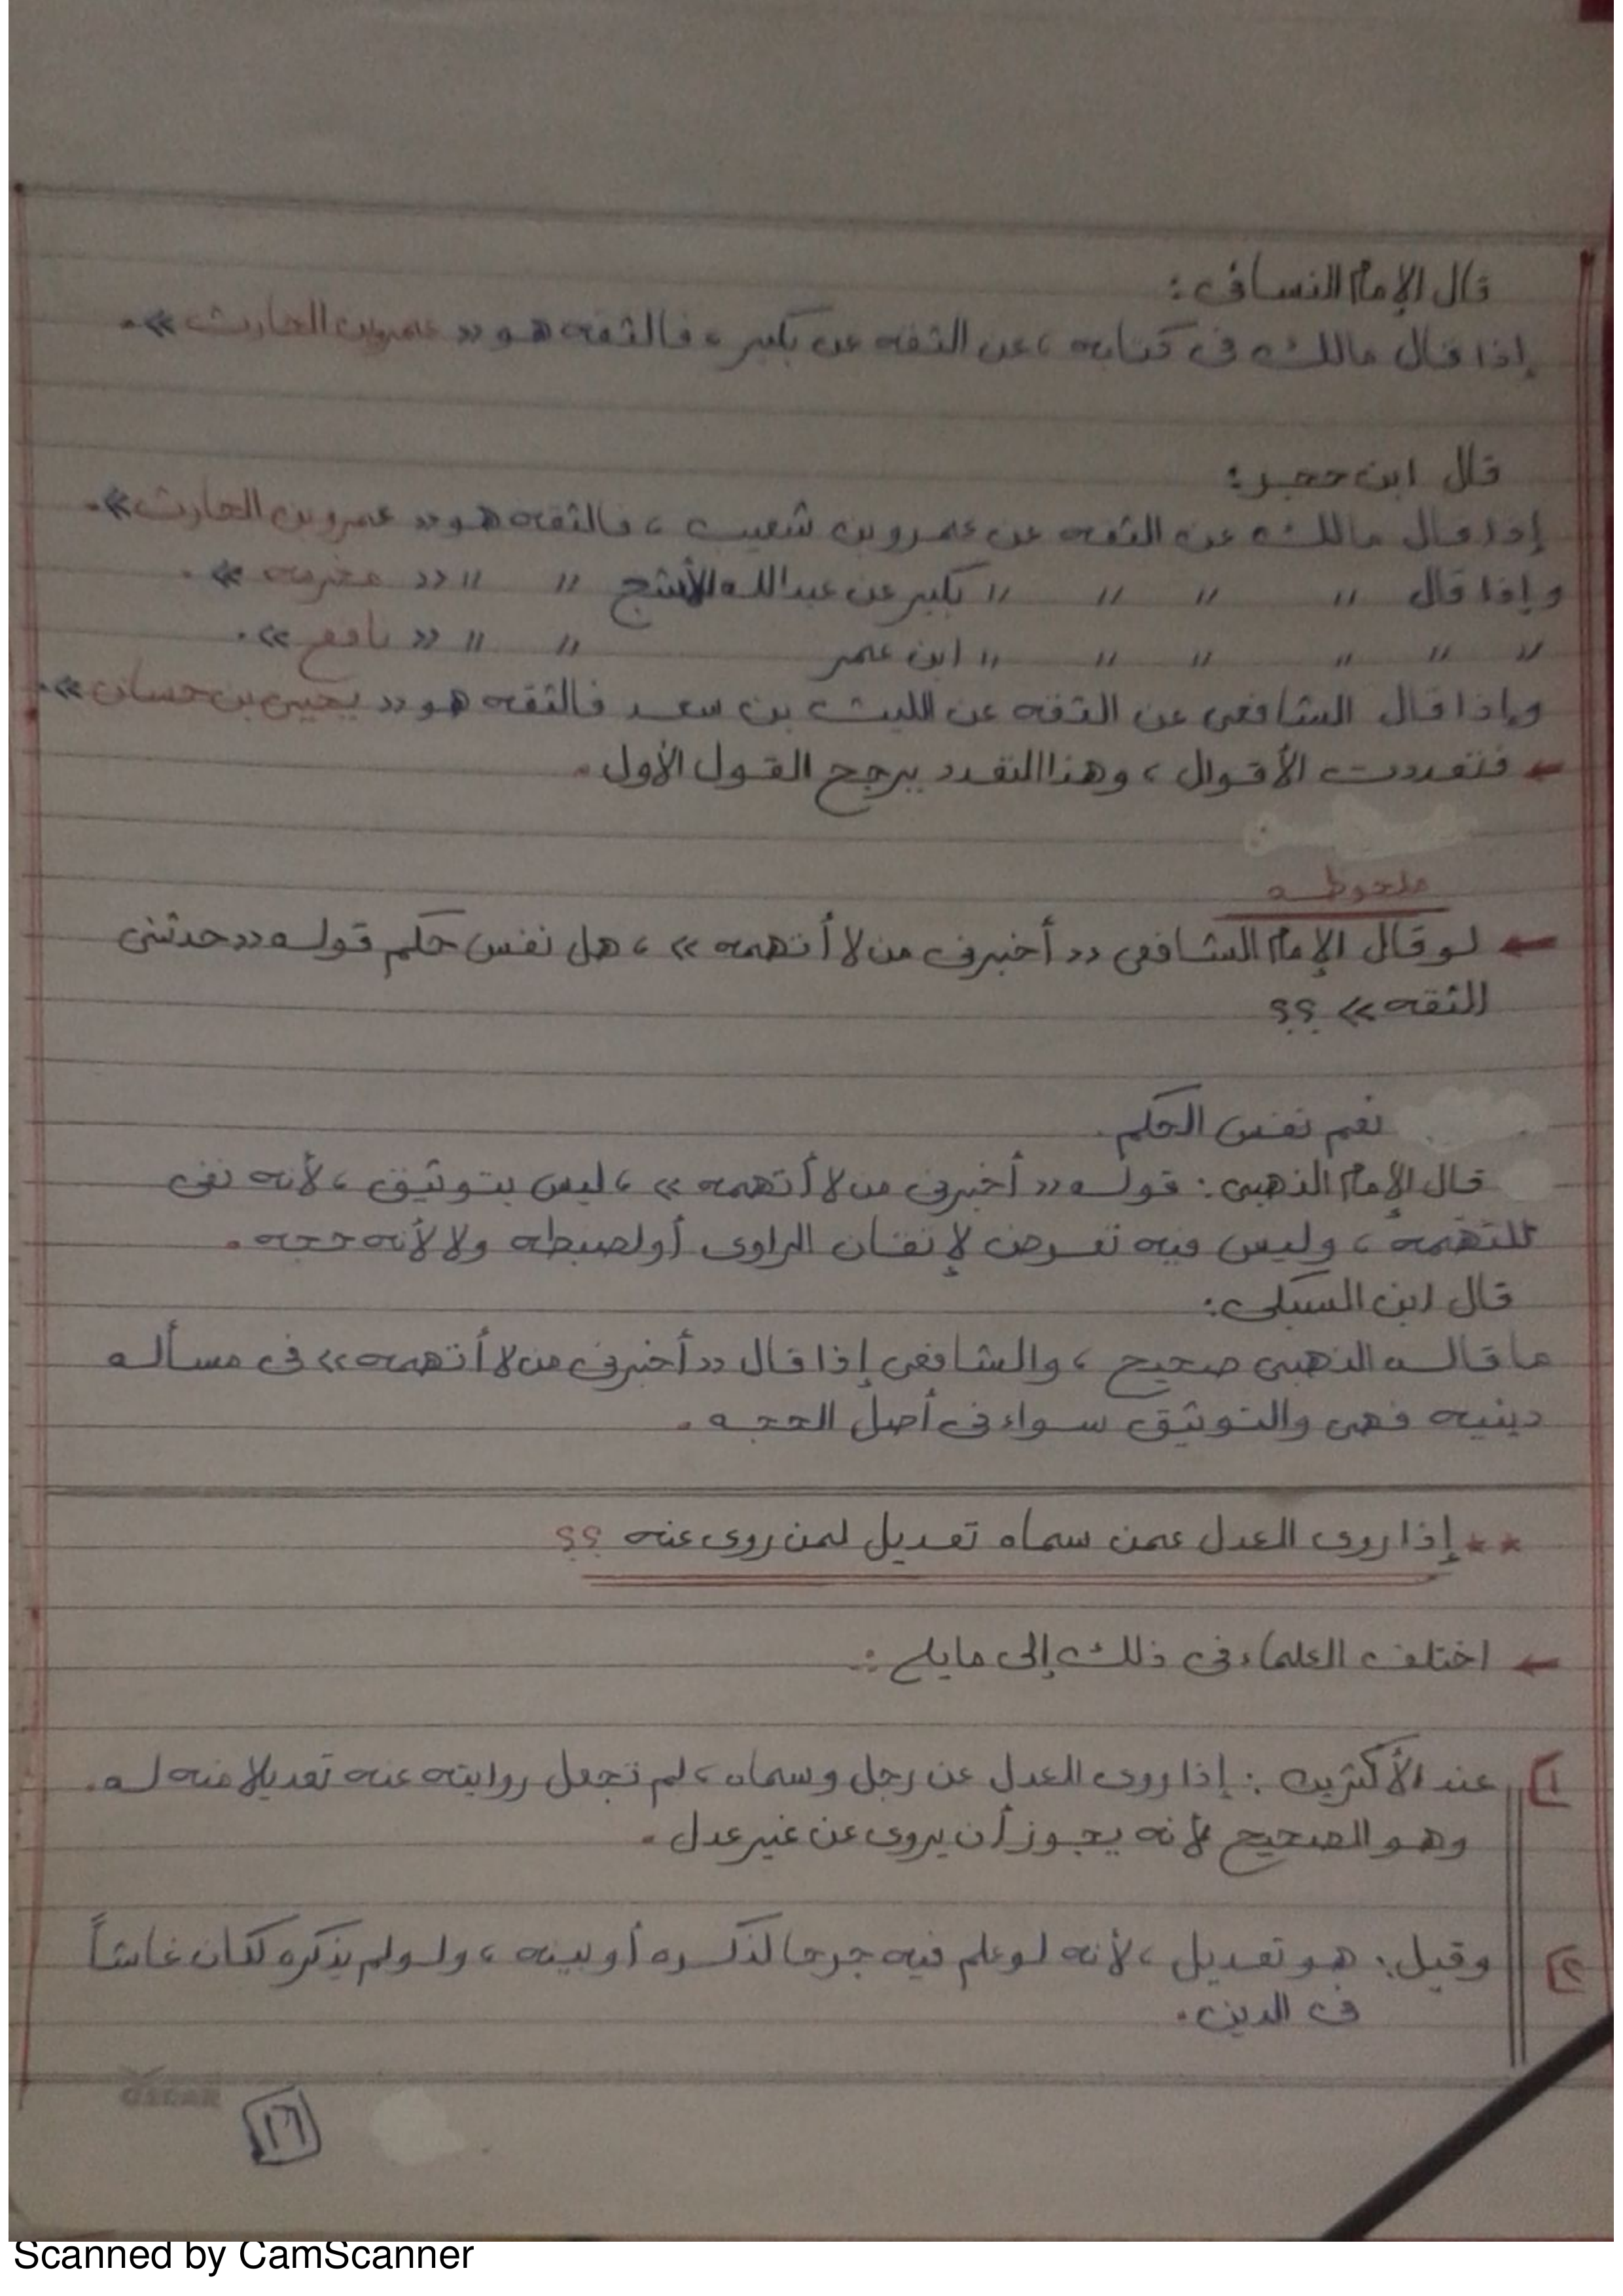 قال الإمام النسائى :
إذا قال مالك فى كتابه ، عن الثقه عن بكير ، فالثقه هو « عمرو بن الحارث » .
قال ابن حجر :
إذا قال مالك عن الثقه عن عمرو بن شعيب ، فالثقه هو « عمرو بن الحارث » .
وإذا قال " " " " بكير عن عبدالله الأشج " " « مخرمه » .
" " " " " " ابن عمر " " « نافع » .
وإذا قال الشافعى عن الثقه عن الليث بن سعد فالثقه هو « يحيى بن حسان » .
← فتعددت الأقوال ، وهذا التعدد يرجح القول الأول .
ملحوظه
← لو قال الإمام الشافعى « أخبرنى من لا أتهمه » ، هل نفس حكم قوله « حدثنى
الثقه » ؟؟
نعم نفس الحكم .
قال الإمام الذهبى : قوله « أخبرنى من لا أتهمه » ، ليس بتوثيق ، لأنه نفى
للتهمه ، وليس فيه تعرض لإتقان الراوى أو لضبطه ولا لأنه حجه .
قال ابن السبكى :
ما قاله الذهبى صحيح ، والشافعى إذا قال « أخبرنى من لا أتهمه » فى مسأله
دينيه فهى والتوثيق سواء فى أصل الحجه .
** إذا روى العدل عمن سماه تعديل لمن روى عنه ؟؟
← اختلف العلماء فى ذلك إلى مايلى :
١) عند الأكثرين : إذا روى العدل عن رجل وسماه ، لم تجعل روايته عنه تعديلا منه له .
وهو الصحيح لأنه يجوز أن يروى عن غير عدل .
٢) وقيل : هو تعديل ، لأنه لو علم فيه جرحا لذكره أو بينه ، ولو لم يذكره لكان غاشاً
فى الدين .
OSCAR
١٦
Scanned by CamScanner